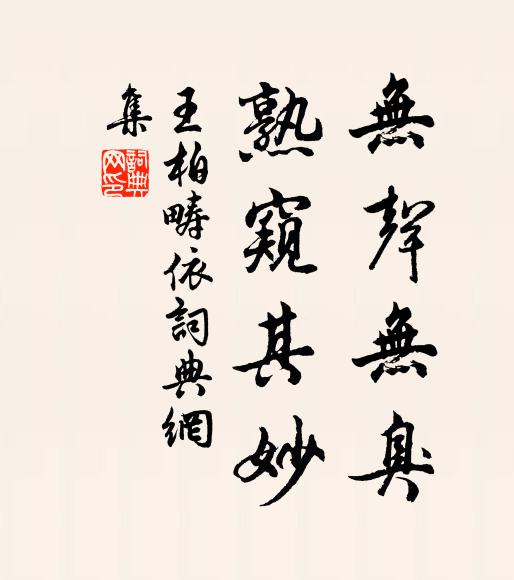 無聲無臭
熟窺其妙
王柏疇依詞典網
集
詞典
网印